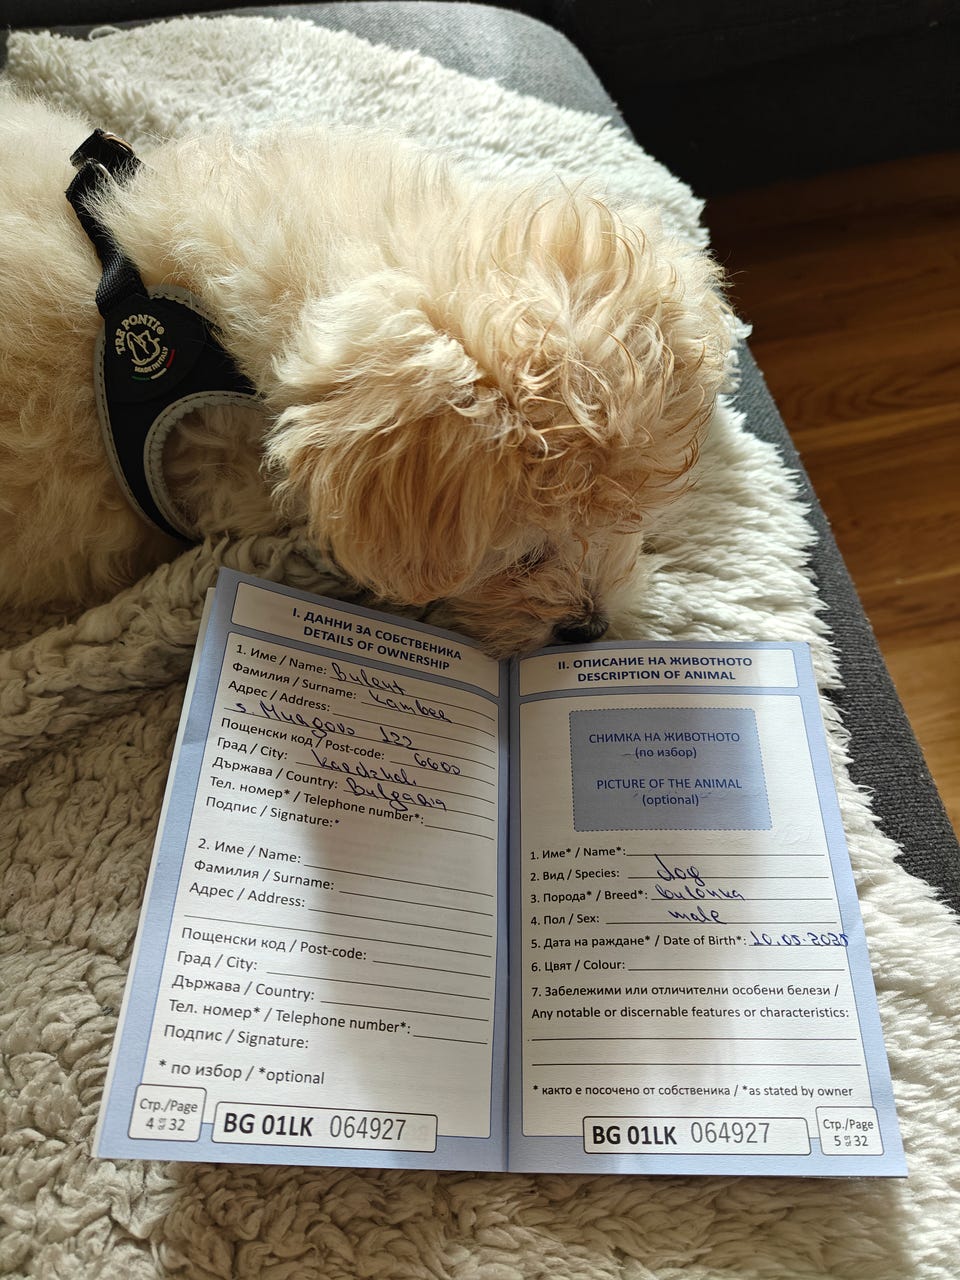 TRE PONTI®
MADE IN ITALY
I. ДАННИ ЗА СОБСТВЕНИКА
DETAILS OF OWNERSHIP
1. Име / Name: Bulent
Фамилия / Surname: Kamber
Адрес / Address:
s. 122
Пощенски код / Post-code: 6600
Град / City: Kardzhali
Държава / Country: Bulgaria
Тел. номер* / Telephone number*:
Подпис / Signature:*
2. Име / Name:
Фамилия / Surname:
Адрес / Address:
Пощенски код / Post-code:
Град / City:
Държава / Country:
Тел. номер* / Telephone number*:
Подпис / Signature:
* по избор / *optional
Стр./Page
4 от/of 32
BG 01LK 064927
II. ОПИСАНИЕ НА ЖИВОТНОТО
DESCRIPTION OF ANIMAL
СНИМКА НА ЖИВОТНОТО
(по избор)
PICTURE OF THE ANIMAL
(optional)
1. Име* / Name*:
2. Вид / Species: dog
3. Порода* / Breed*: bolonka
4. Пол / Sex: male
5. Дата на раждане* / Date of Birth*: 10.05.2025
6. Цвят / Colour:
7. Забележими или отличителни особени белези /
Any notable or discernable features or characteristics:
* както е посочено от собственика / *as stated by owner
BG 01LK 064927
Стр./Page
5 от/of 32